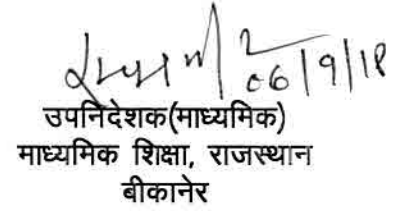 06/9/18
उपनिदेशक(माध्यमिक)
माध्यमिक शिक्षा, राजस्थान
बीकानेर